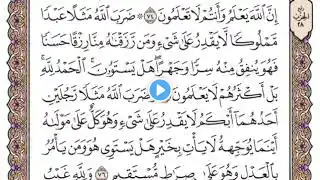 إِنَّ ٱللَّهَ يَعْلَمُ وَأَنتُمْ لَا تَعْلَمُونَ ٧٤ ۞ ضَرَبَ ٱللَّهُ مَثَلًا عَبْدًا
مَّمْلُوكًا لَّا يَقْدِرُ عَلَىٰ شَىْءٍ وَمَن رَّزَقْنَٰهُ مِنَّا رِزْقًا حَسَنًا
فَهُوَ يُنفِقُ مِنْهُ سِرًّا وَجَهْرًا ۖ هَلْ يَسْتَوُۥنَ ۚ ٱلْحَمْدُ لِلَّهِ ۚ
بَلْ أَكْثَرُهُمْ لَا يَعْلَمُونَ ٧٥ وَضَرَبَ ٱللَّهُ مَثَلًا رَّجُلَيْنِ
أَحَدُهُمَآ أَبْكَمُ لَا يَقْدِرُ عَلَىٰ شَىْءٍ وَهُوَ كَلٌّ عَلَىٰ مَوْلَىٰهُ
أَيْنَمَا يُوَجِّههُّ لَا يَأْتِ بِخَيْرٍ هَلْ يَسْتَوِى هُوَ وَمَن يَأْمُرُ
بِٱلْعَدْلِ وَهُوَ عَلَىٰ صِرَٰطٍ مُّسْتَقِيمٍ ٧٦ وَلِلَّهِ غَيْبُ
الحزب
٢٨